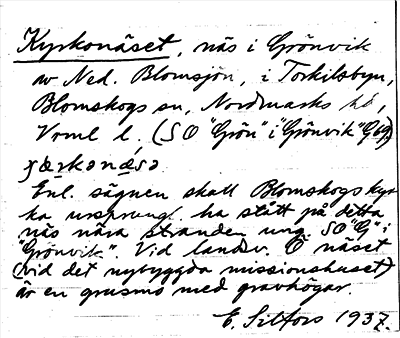 Kyrkonäset, näs i Grönvik
w Ned. Blomsjön, i Torkilsbyn,
Blomskogs sn, Nordmarks hd,
Vrml l, (SO "Grön" i "Grönvik" G69)
Enl. sägnen skall Blomskogs kyr-
ka ursprungl. ha stått på detta
näs nära stranden ung. SO "G" i
"Grönvik". Vid landsv. O näset
(vid det nybyggda missionshuset)
är en grusmo med gravhögar.
E. Silfors 1937.